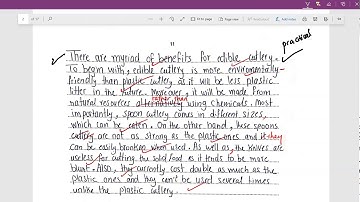 11
practical
There are myriad of benefits for edible cutlery.
To begin with, edible cutlery is more environmentally-
friendly than plastic cutlery, as it will be less plastic
litter in the nature. Moreover, it will be made from
rather than
natural resources alternatively using chemicals. Most
importantly, spoon cutlery comes in different sizes,
which can be eaten. On the other hand, these spoons
cutlery are not as strong as the plastic ones and it they
can be easily broken when used. As well as, the knives are
useless for cutting the solid food as it tends to be more
blunt. Also, they currently cost double as much as the
plastic ones and they can't be used several times
unlike the plastic cutlery.